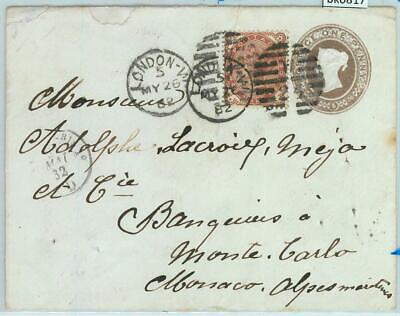 BK0817
LONDON-W
5
MY 26
82
LONDON-W
5
MY 26
82
ONE
Monsieur
Adolphe Lacroix, Meja
& Cie
Banquiers à
Monte-Carlo
Monaco, Alpes maritimes
MAI
82